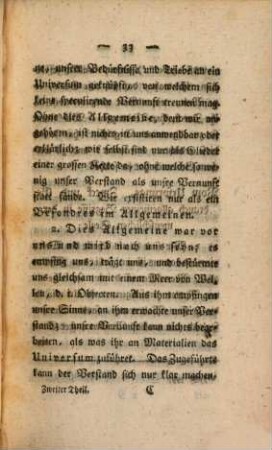 — 33 —
ge, unsere Bedürfnisse und Triebe an ein
Universum geknüpft, von welchem sich
keine speculirende Vernunft trennen mag.
Ohne dies Allgemeine, dem wir
gehören, ist nichts in uns anwendbar oder
erklärlich; wir selbst sind nur als Glieder
einer grossen Kette da, ohne welche so we-
nig unser Verstand als unsre Vernunft
statt fände. Wir existiren nur als ein
Besondres im Allgemeinen.
2. Dies Allgemeine war vor
uns und wird nach uns seyn; es
uns, trägt uns, und bestürmet
uns gleichsam mit einem Meer von Wel-
len, d. i. Objecten. Aus ihm empfingen
unsre Sinne, an ihm erwachte unser Ver-
stand; unsre Vernunft kann nichts
als was ihr an Materialien das
Universum zuführet. Das Zugeführte
kann der Verstand sich nur klar machen,
Zweiter Theil. C